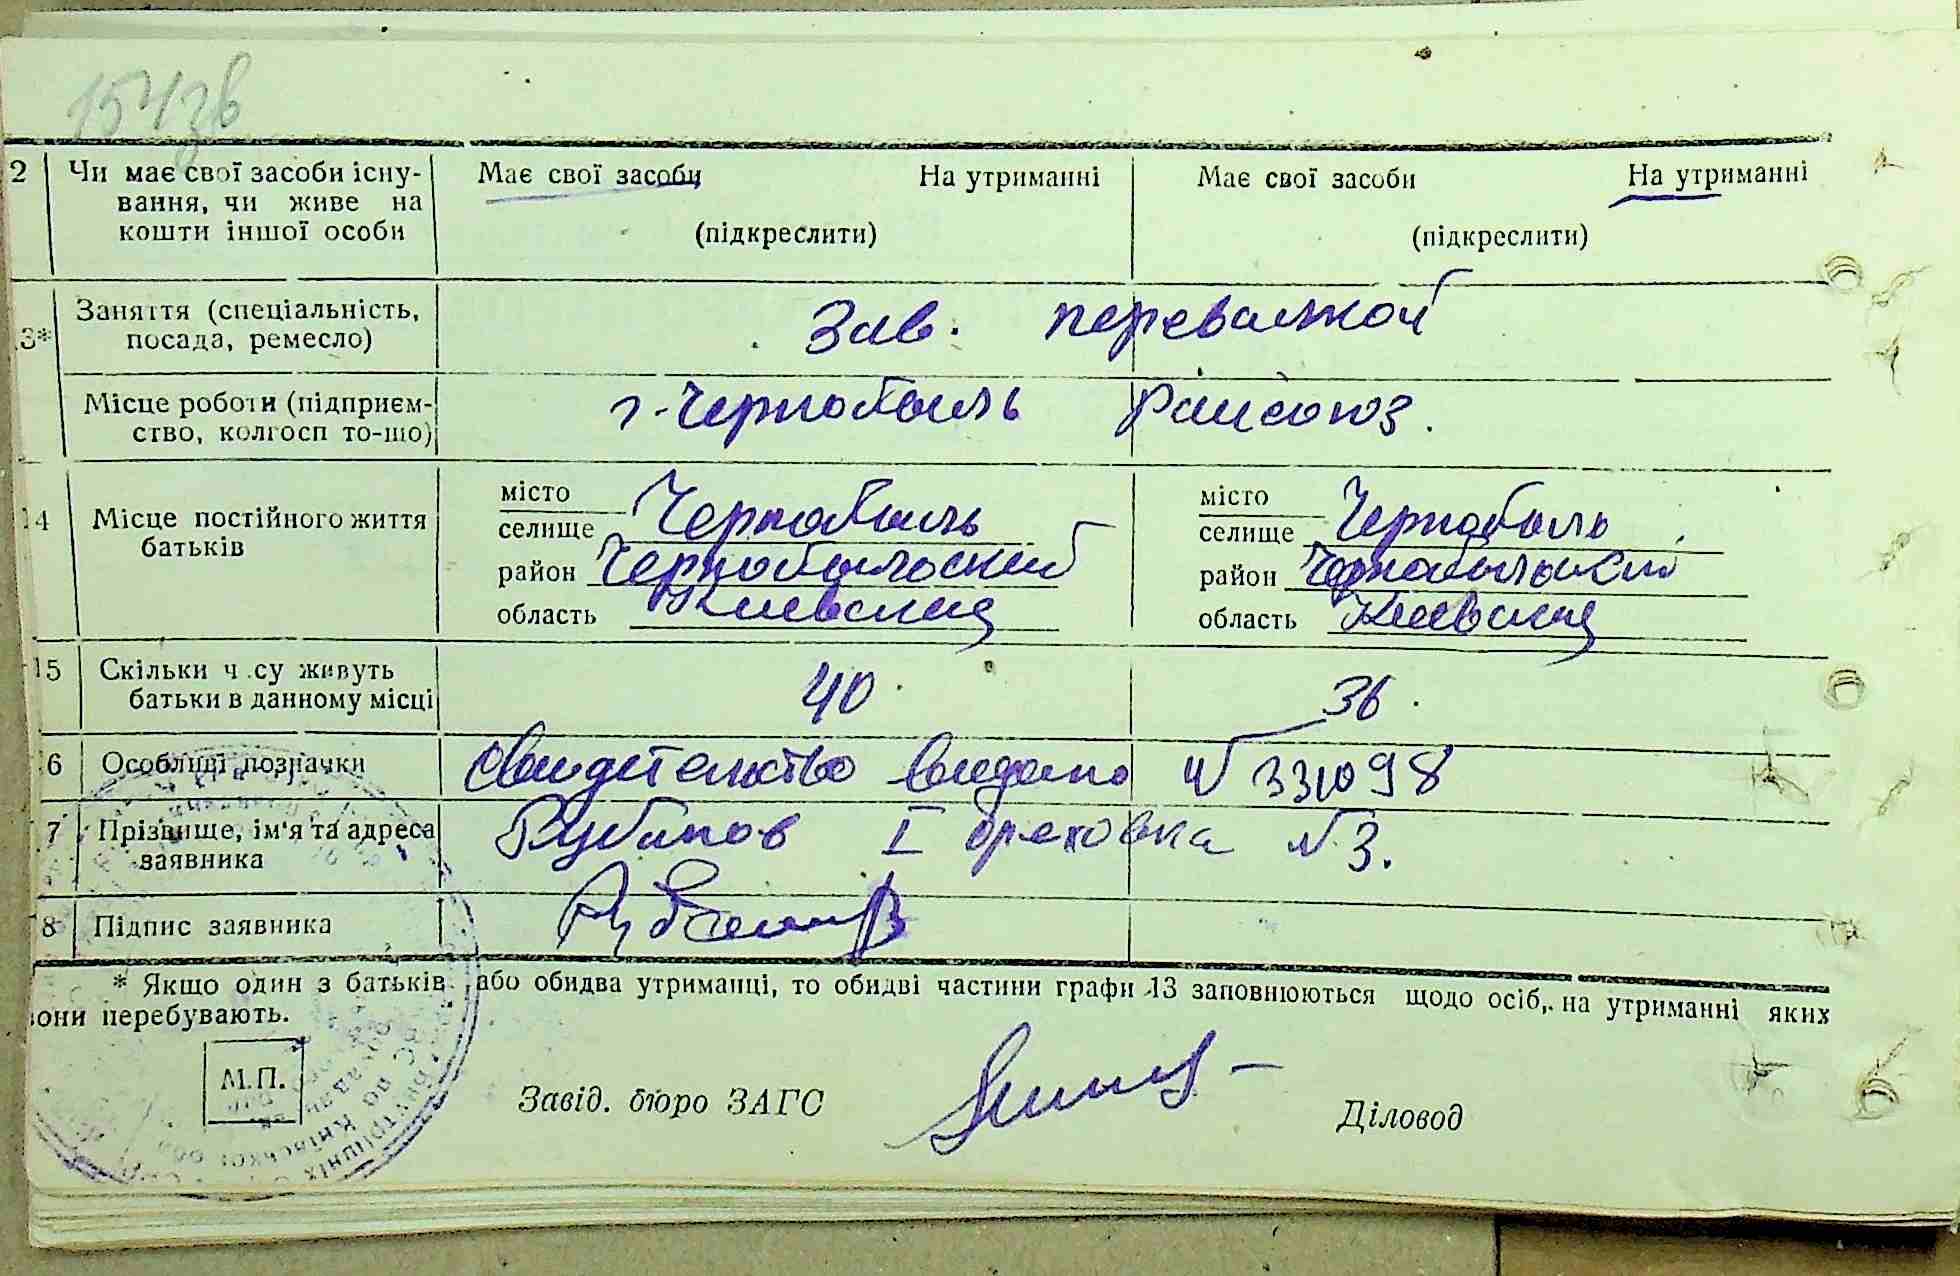 154зв
2 Чи має свої засоби існу- Має свої засоби На утриманні Має свої засоби На утриманні
вання, чи живе на
кошти іншої особи (підкреслити) (підкреслити)
3* Заняття (спеціальність, Зав. перевалкой
посада, ремесло)
Місце роботи (підприєм- г. Чернобыль Райсоюз.
ство, колгосп то-що)
14 Місце постійного життя місто Чернобыль місто Чернобыль
батьків селище селище
район Чернобыльский район Чернобыльский
область Киевская область Киевская
15 Скільки ч су живуть 40 36.
батьки в данному місці
6 Особливі позначки Свидетельство выдано № 331098
7 Прізвище, ім'я та адреса Рубинов I Ореховка № 3.
заявника
8 Підпис заявника
* Якщо один з батьків або обидва утриманці, то обидві частини графи 13 заповнюються щодо осіб, на утриманні яких
вони перебувають.
М.П.
Завід. бюро ЗАГС Діловод